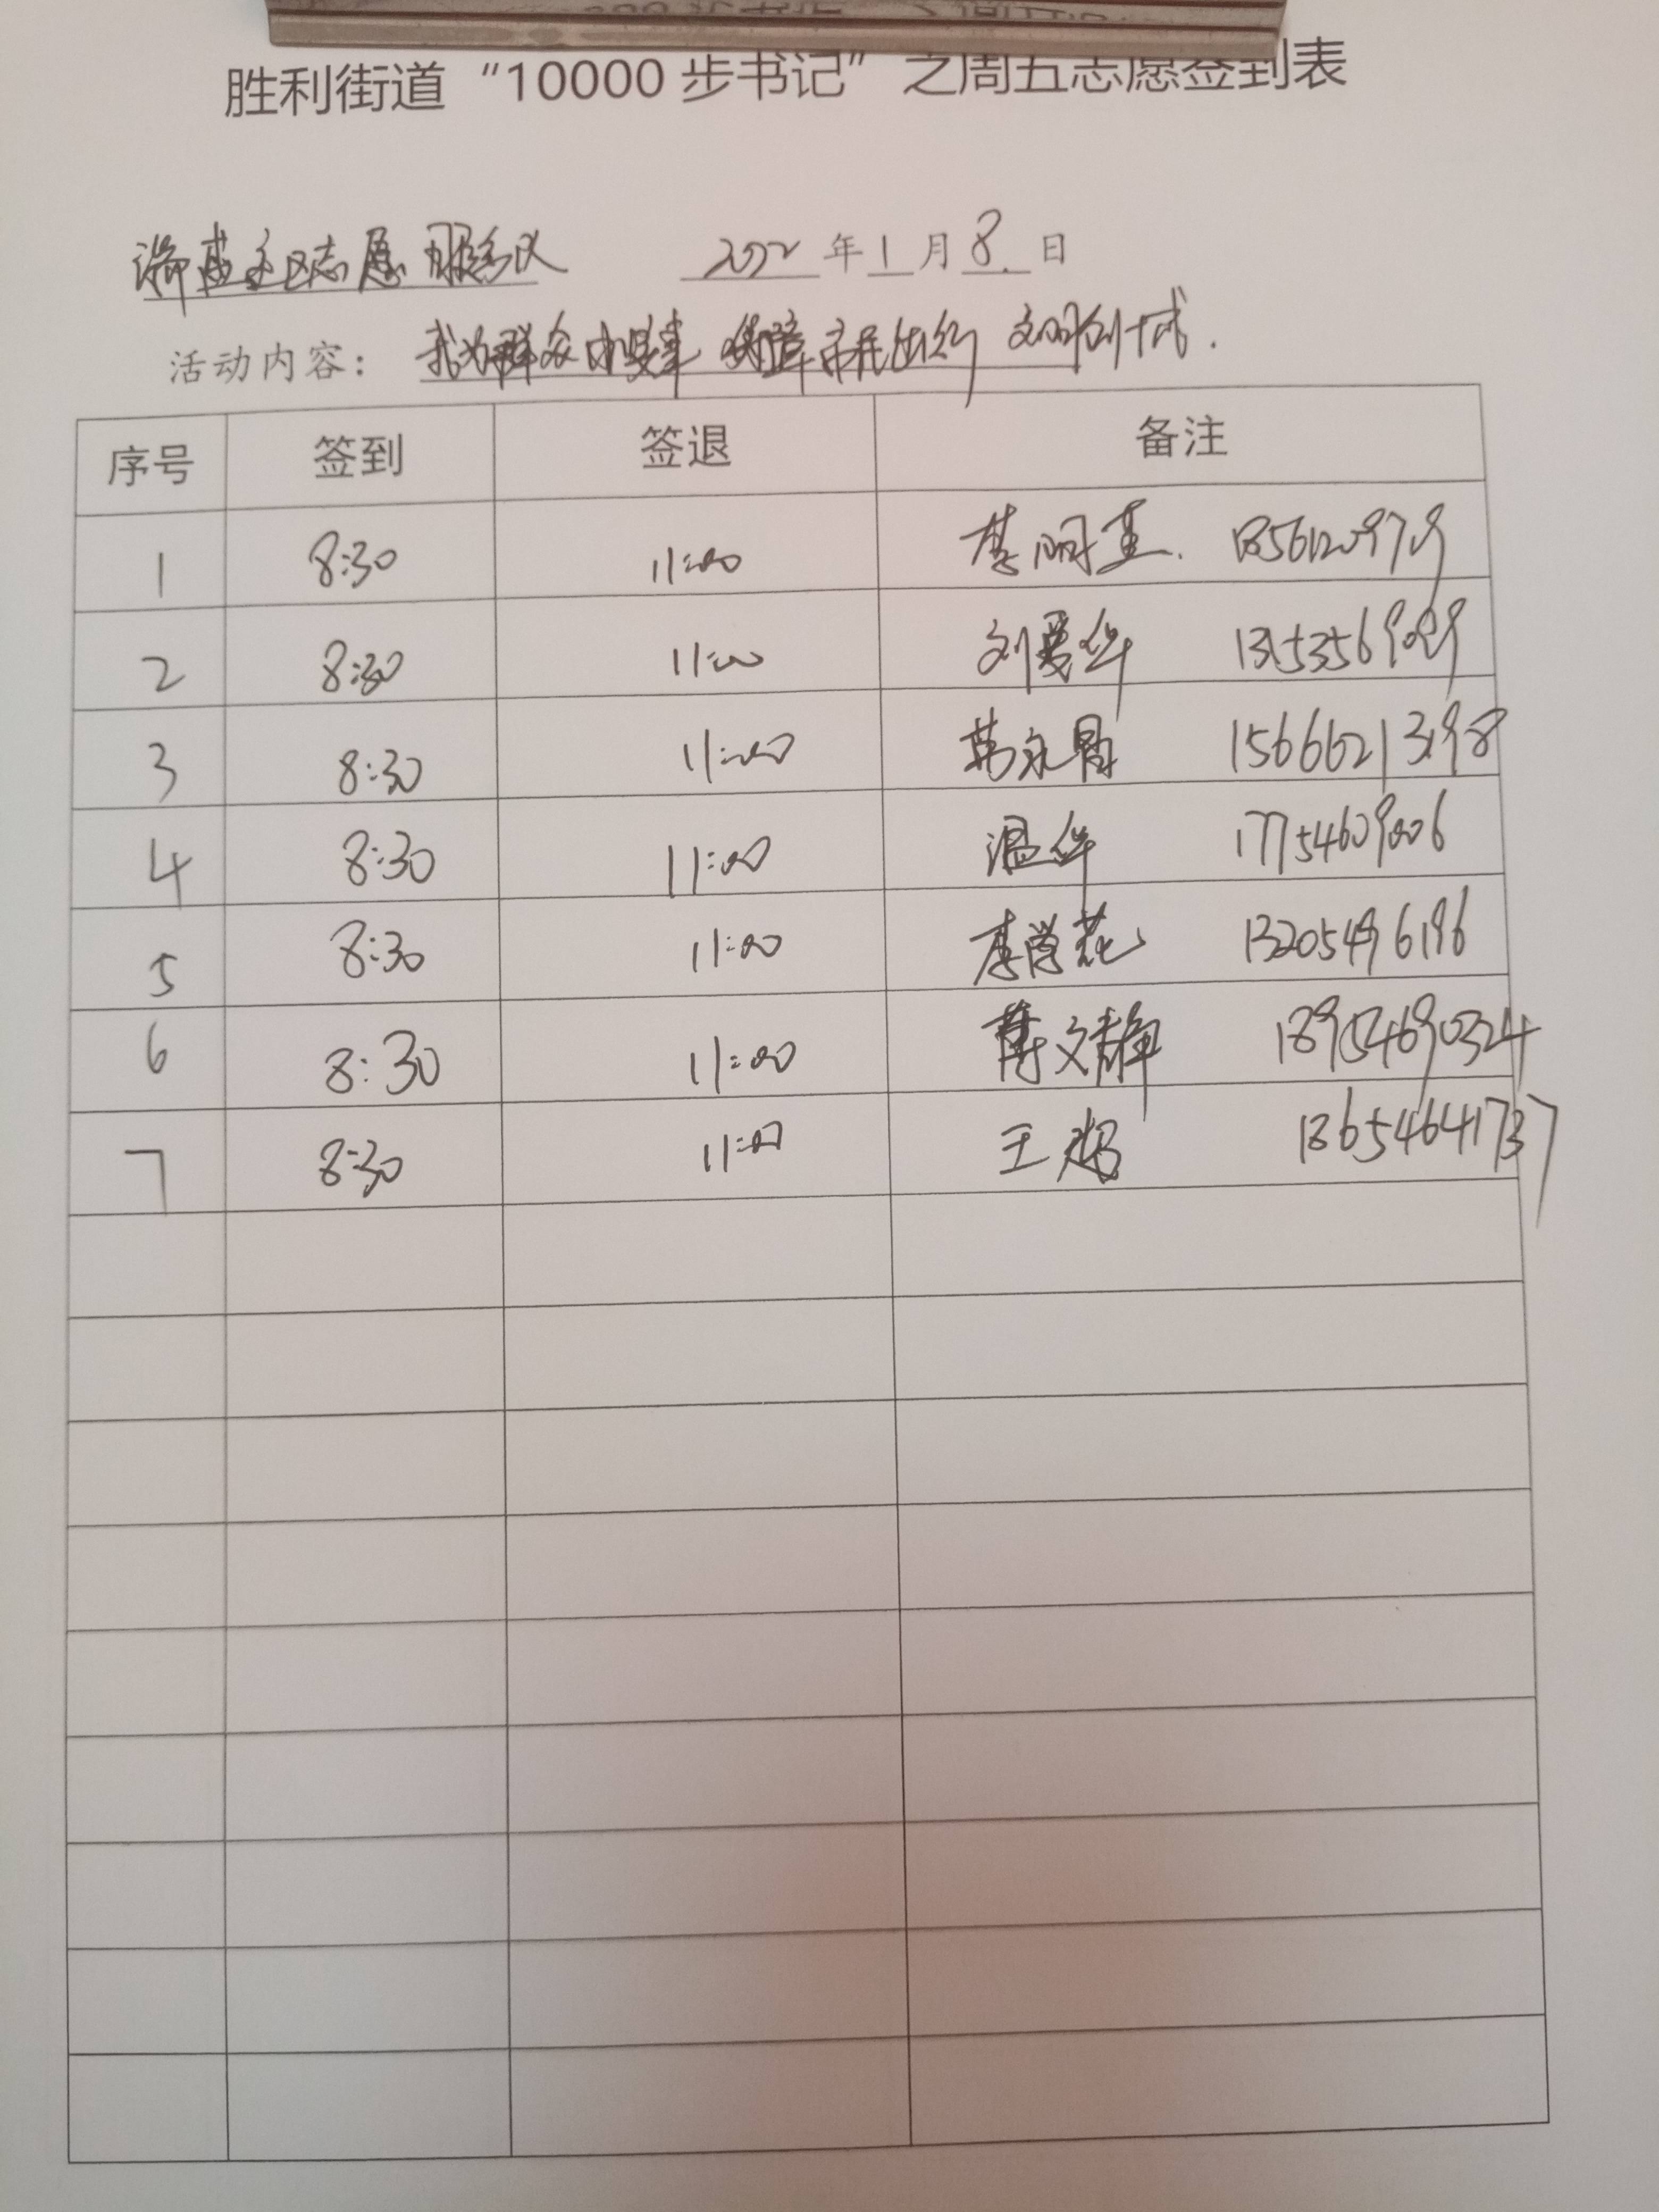 胜利街道“10000步书记”之周五志愿签到表
社区志愿服务队 2022年1月8日
活动内容：我为群众办实事 保障市民出行 文明创城.
序号 签到 签退 备注
1 8:30 11:00 李丽
2 8:30 11:00 刘爱华
3 8:30 11:00 韩永 15666213198
4 8:30 11:00 温华 17754609006
5 8:30 11:00 李学花 13205496196
6 8:30 11:00 文静 18954690324
7 8:30 11:00 王 18654641737